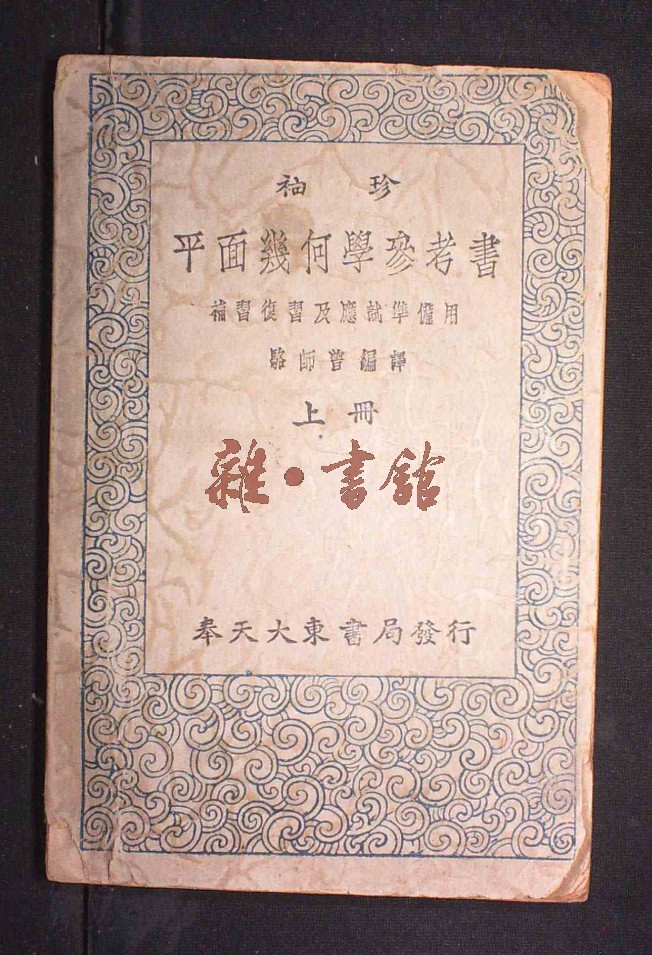 袖珍
平面幾何學參考書
補習復習及應試準備用
駱師曾編譯
上冊
雜·書館
奉天大東書局發行